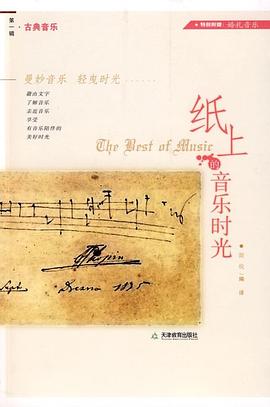 第一辑·古典音乐
特别附赠 婚礼音乐
曼妙音乐 轻曳时光……
藉由文字
了解音乐
亲近音乐
享受
有音乐陪伴的
美好时光
纸上的音乐时光
The Best of Music
Chopin
Dresno 1835
编 译
天津教育出版社